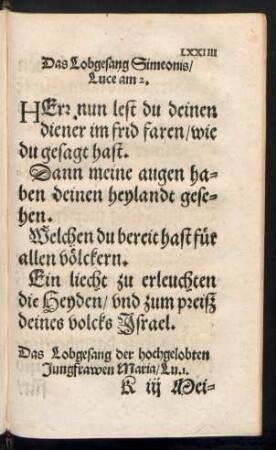 LXXIIII
Das Lobgesang Simeonis/
Luce am 2.
HErr nun lest du deinen
diener im frid faren/wie
du gesagt hast.
Dann meine augen ha-
ben deinen heylandt gese-
hen.
Welchen du bereit hast für
allen völckern.
Ein liecht zu erleuchten
die Heyden/ vnd zum preiß
deines volcks Israel.
Das Lobgesang der hochgelobten
Jungfrawen Maria/Lu.1.
K iij Mei-